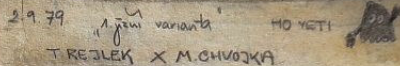 2.9.79 „1. jižní varianta" MO YETI
T. REJLEK X M. CHVOJKA